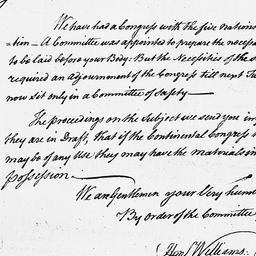 We have had a Congress with the five nations
-tion - A Committee was appointed to prepare the necessa
to be laid before your Body: But the Necessities of the
required an Adjournment of the Congress till next
now sit only in a Committee of Safety
The proceedings on the Subject we send you in
they are in Draft, that if the Continental Congress
may be of any Use they may have the materials in
possession.
We are Gentlemen your Very humb
By order of the Committee
Williams